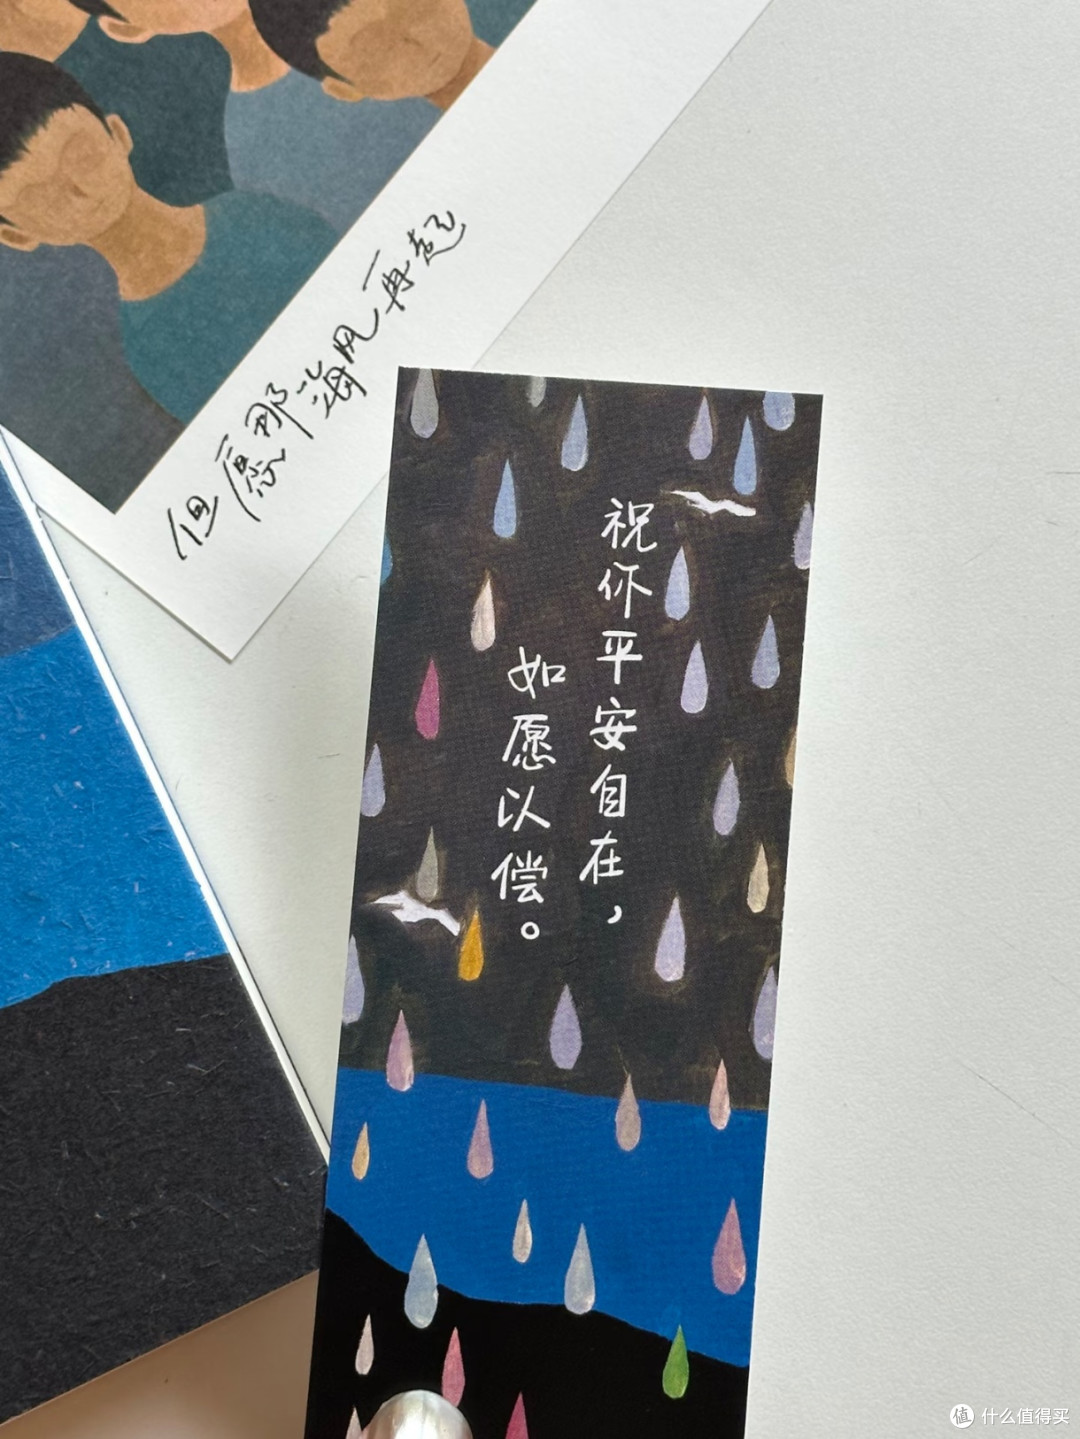 但愿那海风再起
祝你平安自在，
如愿以偿。
值 什么值得买